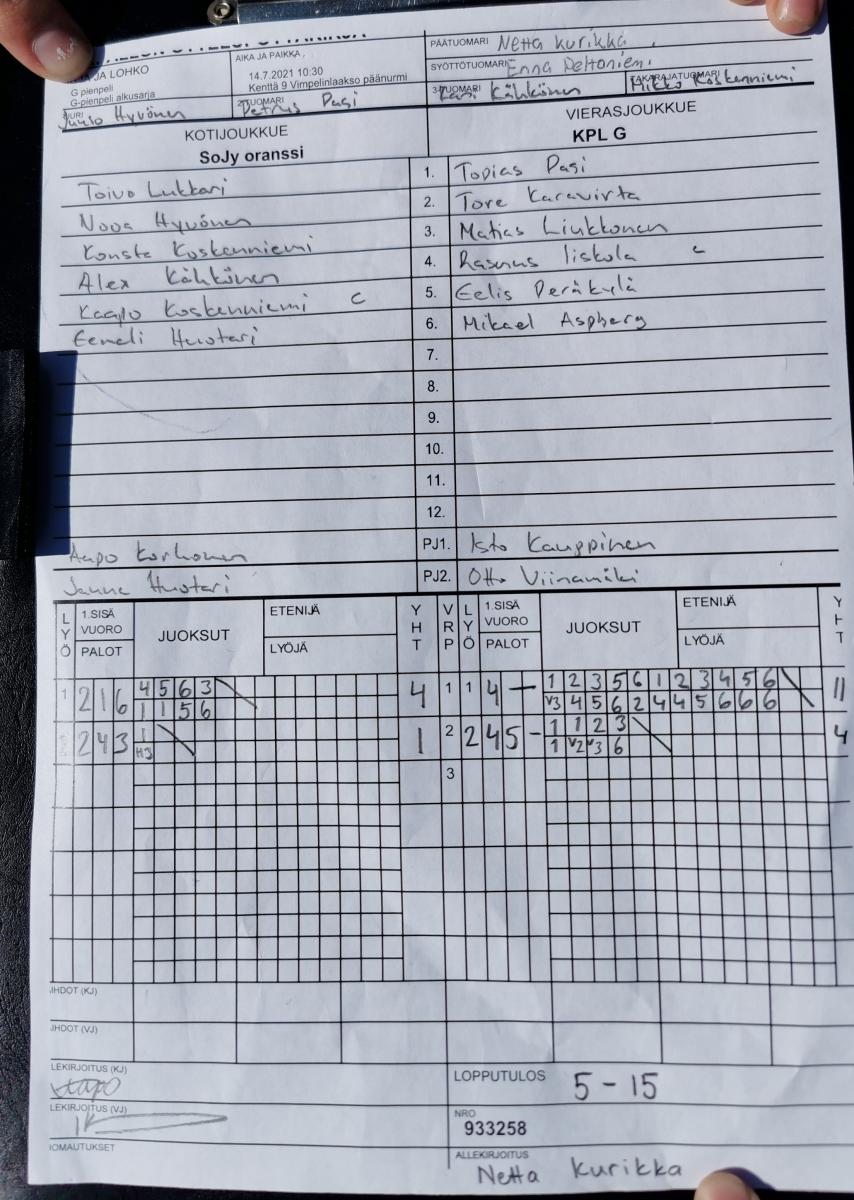 JA LOHKO
G pienpeli
G-pienpeli alkusarja
AIKA JA PAIKKA
14.7.2021 10:30
Kenttä 9 Vimpelinlaakso päänurmi
PÄÄTUOMARI Netta Kurikka
SYÖTTÖTUOMARI Enna Peltoniemi
Juuso Hyvönen
2-TUOMARI Petrus Pasi
3-TUOMARI Kähkönen
TAKARAJATUOMARI Mikko Koskenniemi
KOTIJOUKKUE
SoJy oranssi
VIERASJOUKKUE
KPL G
Toivo Lukkari 1. Topias Pasi
Nooa Hyvönen 2. Tore Karavirta
Konsta Koskenniemi 3. Matias Liukkonen
Alex Kähkönen 4. Rasmus Iiskola c
Kaapo Koskenniemi c 5. Eelis Peräkylä
Eemeli Huotari 6. Mikael Aspberg
7.
8.
9.
10.
11.
12.
Aapo Korhonen PJ1. Isto Kauppinen
Janne Huotari PJ2. Otto Viinamäki
LYÖ 1.SISÄ VUORO PALOT JUOKSUT ETENIJÄ LYÖJÄ YHT VRP LYÖ 1.SISÄ VUORO PALOT JUOKSUT ETENIJÄ LYÖJÄ YHT
1 2 1 6 4 5 6 3 4 1 1 4 – 1 2 3 5 6 1 2 3 4 5 6 11
1 1 5 6 V3 4 5 6 2 4 4 5 6 6 6
2 4 3 1 1 2 2 4 5 – 1 1 2 3 4
H3 1 V2 V3 6
3
IHDOT (KJ)
IHDOT (VJ)
LEKIRJOITUS (KJ)
LEKIRJOITUS (VJ)
IOMAUTUKSET
LOPPUTULOS 5 - 15
NRO
933258
ALLEKIRJOITUS
Netta Kurikka